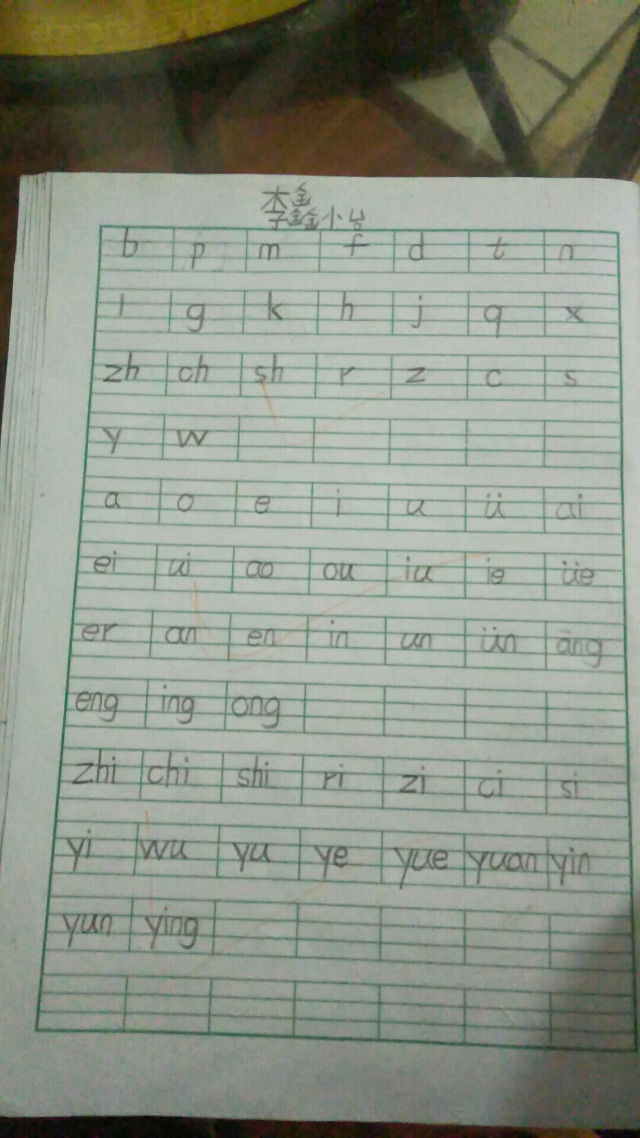 李鑫鑫小台
b p m f d t n
l g k h j q x
zh ch sh r z c s
y w
a o e i u ü ai
ei ui ao ou iu ie üe
er an en in un ün āng
eng ing ong
zhi chi shi ri zi ci si
yi wu yu ye yue yuan yin
yun ying